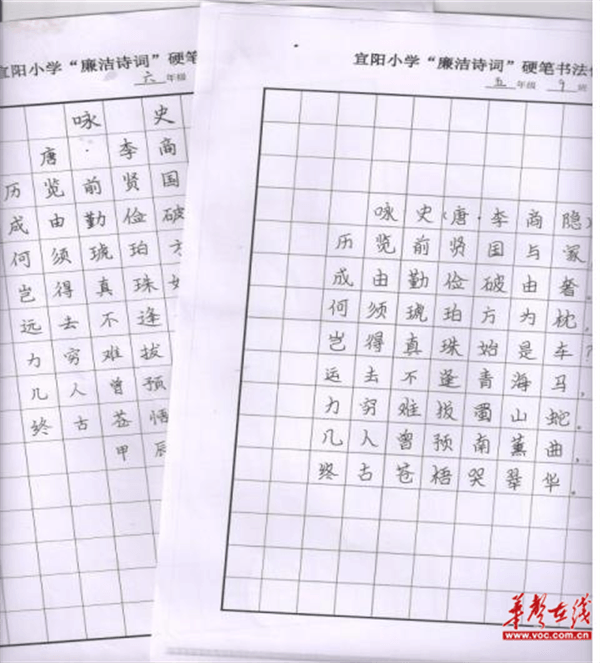 宜阳小学“廉洁诗词”硬笔
六年级
咏史
唐·李商
历览前贤国
成由勤俭破
何须琥珀方
岂得真珠
远去不逢
力穷难拔
几人曾预
终古苍梧
甲辰
宜阳小学“廉洁诗词”硬笔书法
五年级 9班
咏史(唐·李商隐)
历览前贤国与家,
成由勤俭破由奢。
何须琥珀方为枕,
岂得真珠始是车?
运去不逢青海马,
力穷难拔蜀山蛇。
几人曾预南薰曲,
终古苍梧哭翠华。
华声在线
www.voc.com.cn